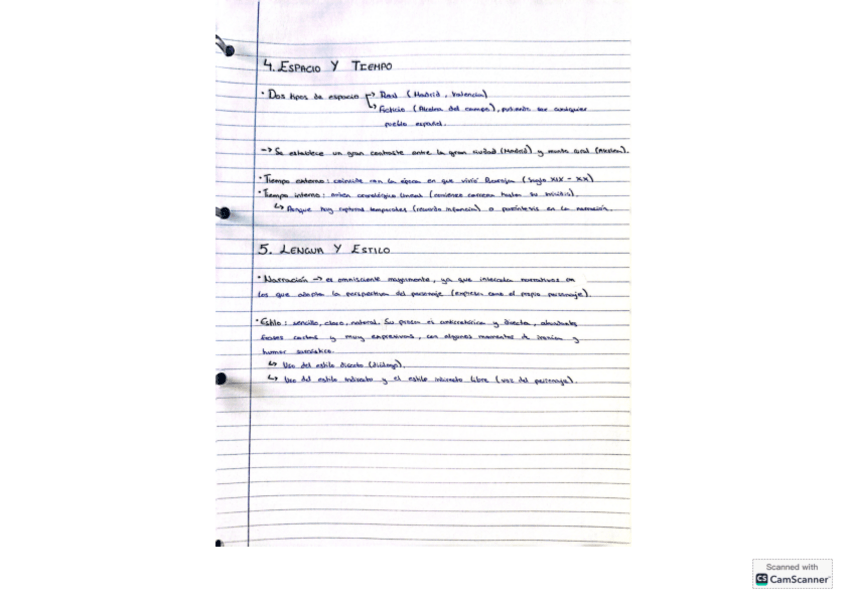 4. ESPACIO Y TIEMPO
• Dos tipos de espacio → Real (Madrid, Valencia)
↳ Ficticio (Alcolea del campo), pudiendo ser cualquier
pueblo español.
→ Se establece un gran contraste entre la gran ciudad (Madrid) y mundo rural (Alcolea).
• Tiempo externo: coincide con la época en que vivió Baroja (siglo XIX - XX)
• Tiempo interno: orden cronológico lineal (comienza carrera hasta su suicidio).
↳ Aunque hay rupturas temporales (recuerdo infancia) o paréntesis en la narración.
5. LENGUA Y ESTILO
• Narración → es omnisciente mayormente, ya que intercala narrativos en
los que adopta la perspectiva del personaje (expresa como el propio personaje).
• Estilo: sencillo, claro, natural. Su prosa es antirretórica y directa, abundantes
frases cortas y muy expresivas, con algunos momentos de ironía y
humor sarcástico.
↳ Uso del estilo directo (diálogo).
↳ Uso del estilo indirecto y el estilo indirecto libre (voz del personaje).
Scanned with
CS CamScanner